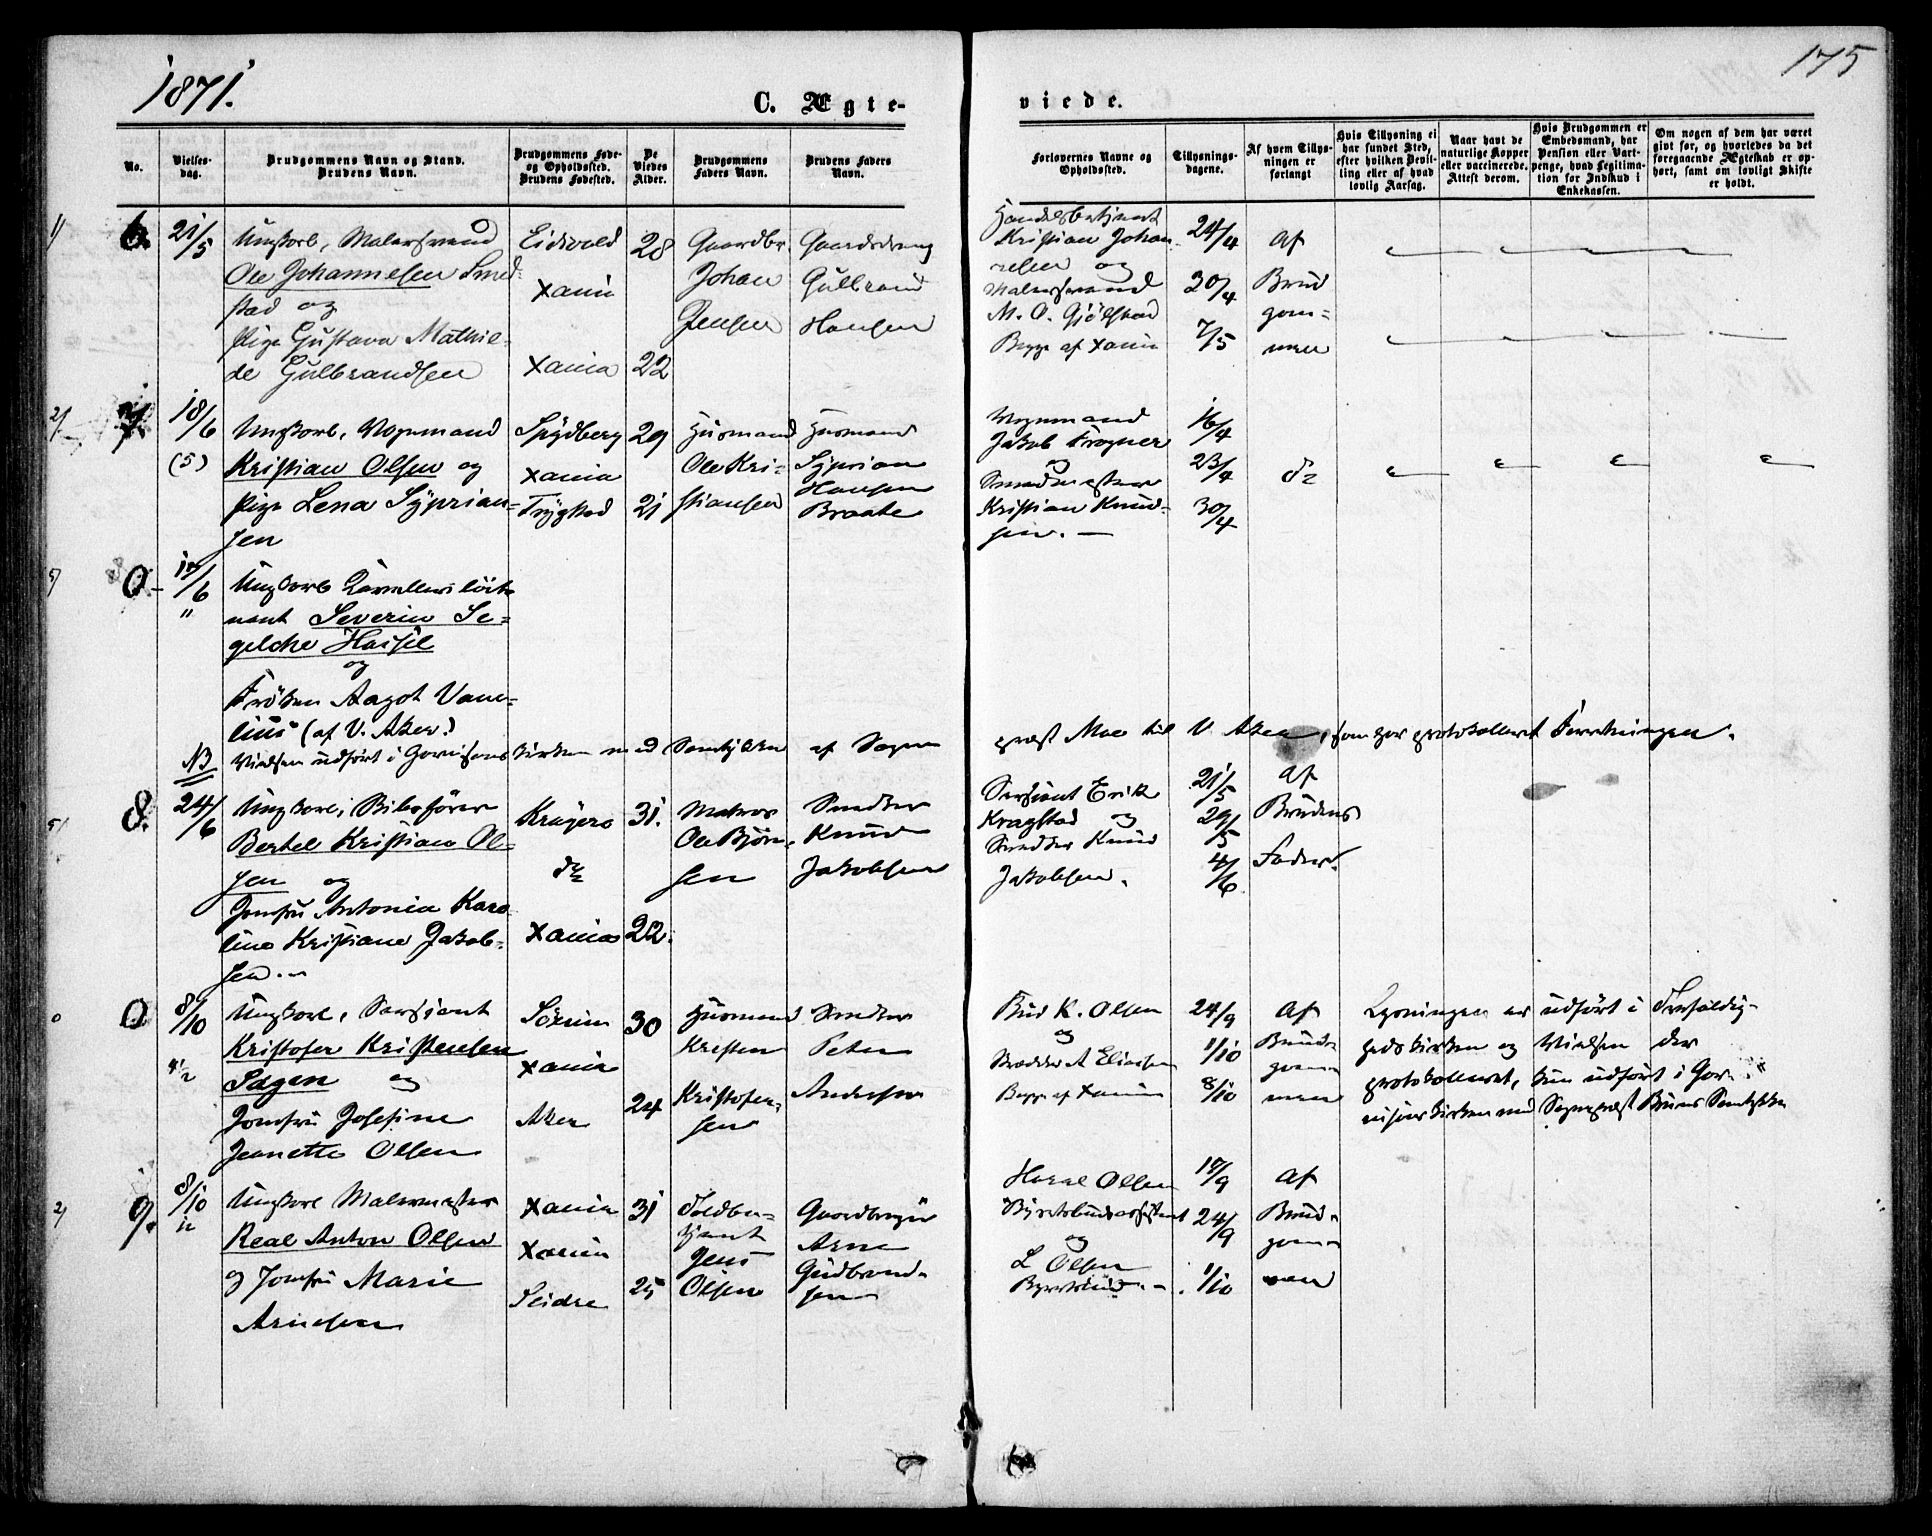 1871.
175
C. Ægte-
viede.
No.
Vielses-
dag.
Brudgommens Navn og Stand.
Brudens Navn.
Brudgommens Føde-
og Opholdssted.
Brudens Fødested.
De
Viedes
Alder.
Brudgommens
Faders Navn.
Brudens Faders
Navn.
Forlovernes Navne og
Opholdssted.
Tillysnings-
dagene.
Af hvem Tillys-
ningen er
forlangt
Hvis Tillysning ei
har fundet Sted,
efter hvilken Bevil-
ling eller af hvad
lovlig Aarsag.
Naar havt de
naturlige Kopper
eller vaccinerede.
Attest derom.
Hvis Brudgommen er
Embedsmand, har
Pension eller Vart-
penge, hvad Legitima-
tion for Indskud i
Enkekassen.
Om nogen af dem har været
givt før, og hvorledes da det
foregaaende Ægteskab er op-
hørt, samt om lovligt Skifte
er holdt.
6.
21/5
Ungkarl, Malersvend
Ole Johannesen Smed-
stad og
Pige Gustava Mathil-
de Gulbrandsen
Eidsvold
Xania
Xania
28
22
Gaardbr.
Johan
Jensen
Gaardsdreng
Gulbrand
Hansen
Handelsbetjent
Kristian Johan-
nesen og
Malersvend
M. O. Gjölstad
Begge af Xania
24/4
30/4
7/5
Af
Brud
gom=
men
7.
18/6
(5)
Ungkarl, Vognmand
Kristian Olsen og
Pige Lena Syprian-
sen
Spydberg
Xania
Trygstad
29
21
Husmand
Ole Kri-
stiansen
Husmand
Syprian
Hansen
Braate
Vognmand
Jakob Frogner
og
Smedmester
Kristian Knud-
sen. —
16/4
23/4
30/4
do
0.
18/6
"
Ungkarl Kavalleriløit-
nant Severin Se-
gelcke Hassel
og
Fröken Aagot Vane-
lius (af V. Aker.)
NB
Vielsen udført i Garnisonskirken med Samtykke af Sogne
præst Moe til V. Aker, som har protokolleret Forretningen.
8.
24/6
Ungkarl, Bibøsser
Bertel Kristian Ol-
sen og
Jomfru Antonia Karo-
line Kristiane Jakob-
sen. —
Kragerø
do
Xania
31.
22.
Matros
Ole Björn-
sen
Snedker
Knud
Jakobsen
Sersjant Erik
Kragstad og
Snedker Knud
Jakobsen.
21/5
29/5
4/6
Af
Brudens
Fader.
0
8/10
4 1/2
Ungkarl, Sersjant
Kristofer Kristensen
Sagen og
Jomfru Josefine
Jeanette Olsen
Sörum
Xania
Aker
30
24
Husmand
Kristen
Kristofer-
sen
Snedker
Peter
Andersen
Bud K. Olsen
og
Snedker A Eliassen
Begge af Xania
24/9
1/10
8/10
Af
Brud-
gom-
men
Lysningen er udført i Trefoldig-
hedskirken og Vielsen der
protokolleret, kun udført i Gar-
nisonskirken med Sognepræst Bruns Samtykke
9.
8/10
Ungkarl Malermester
Real Anton Olsen
og Jomfru Marie
Arnesen
Xania
Xania
Slidre
31
25
Toldbe-
tjent
Jens
Olsen
Gaardbruger
Arne
Gudbrand-
sen
Haral Olsen
og
L Olsen
17/9
24/9
1/10
Af
Brud-
gom-
men